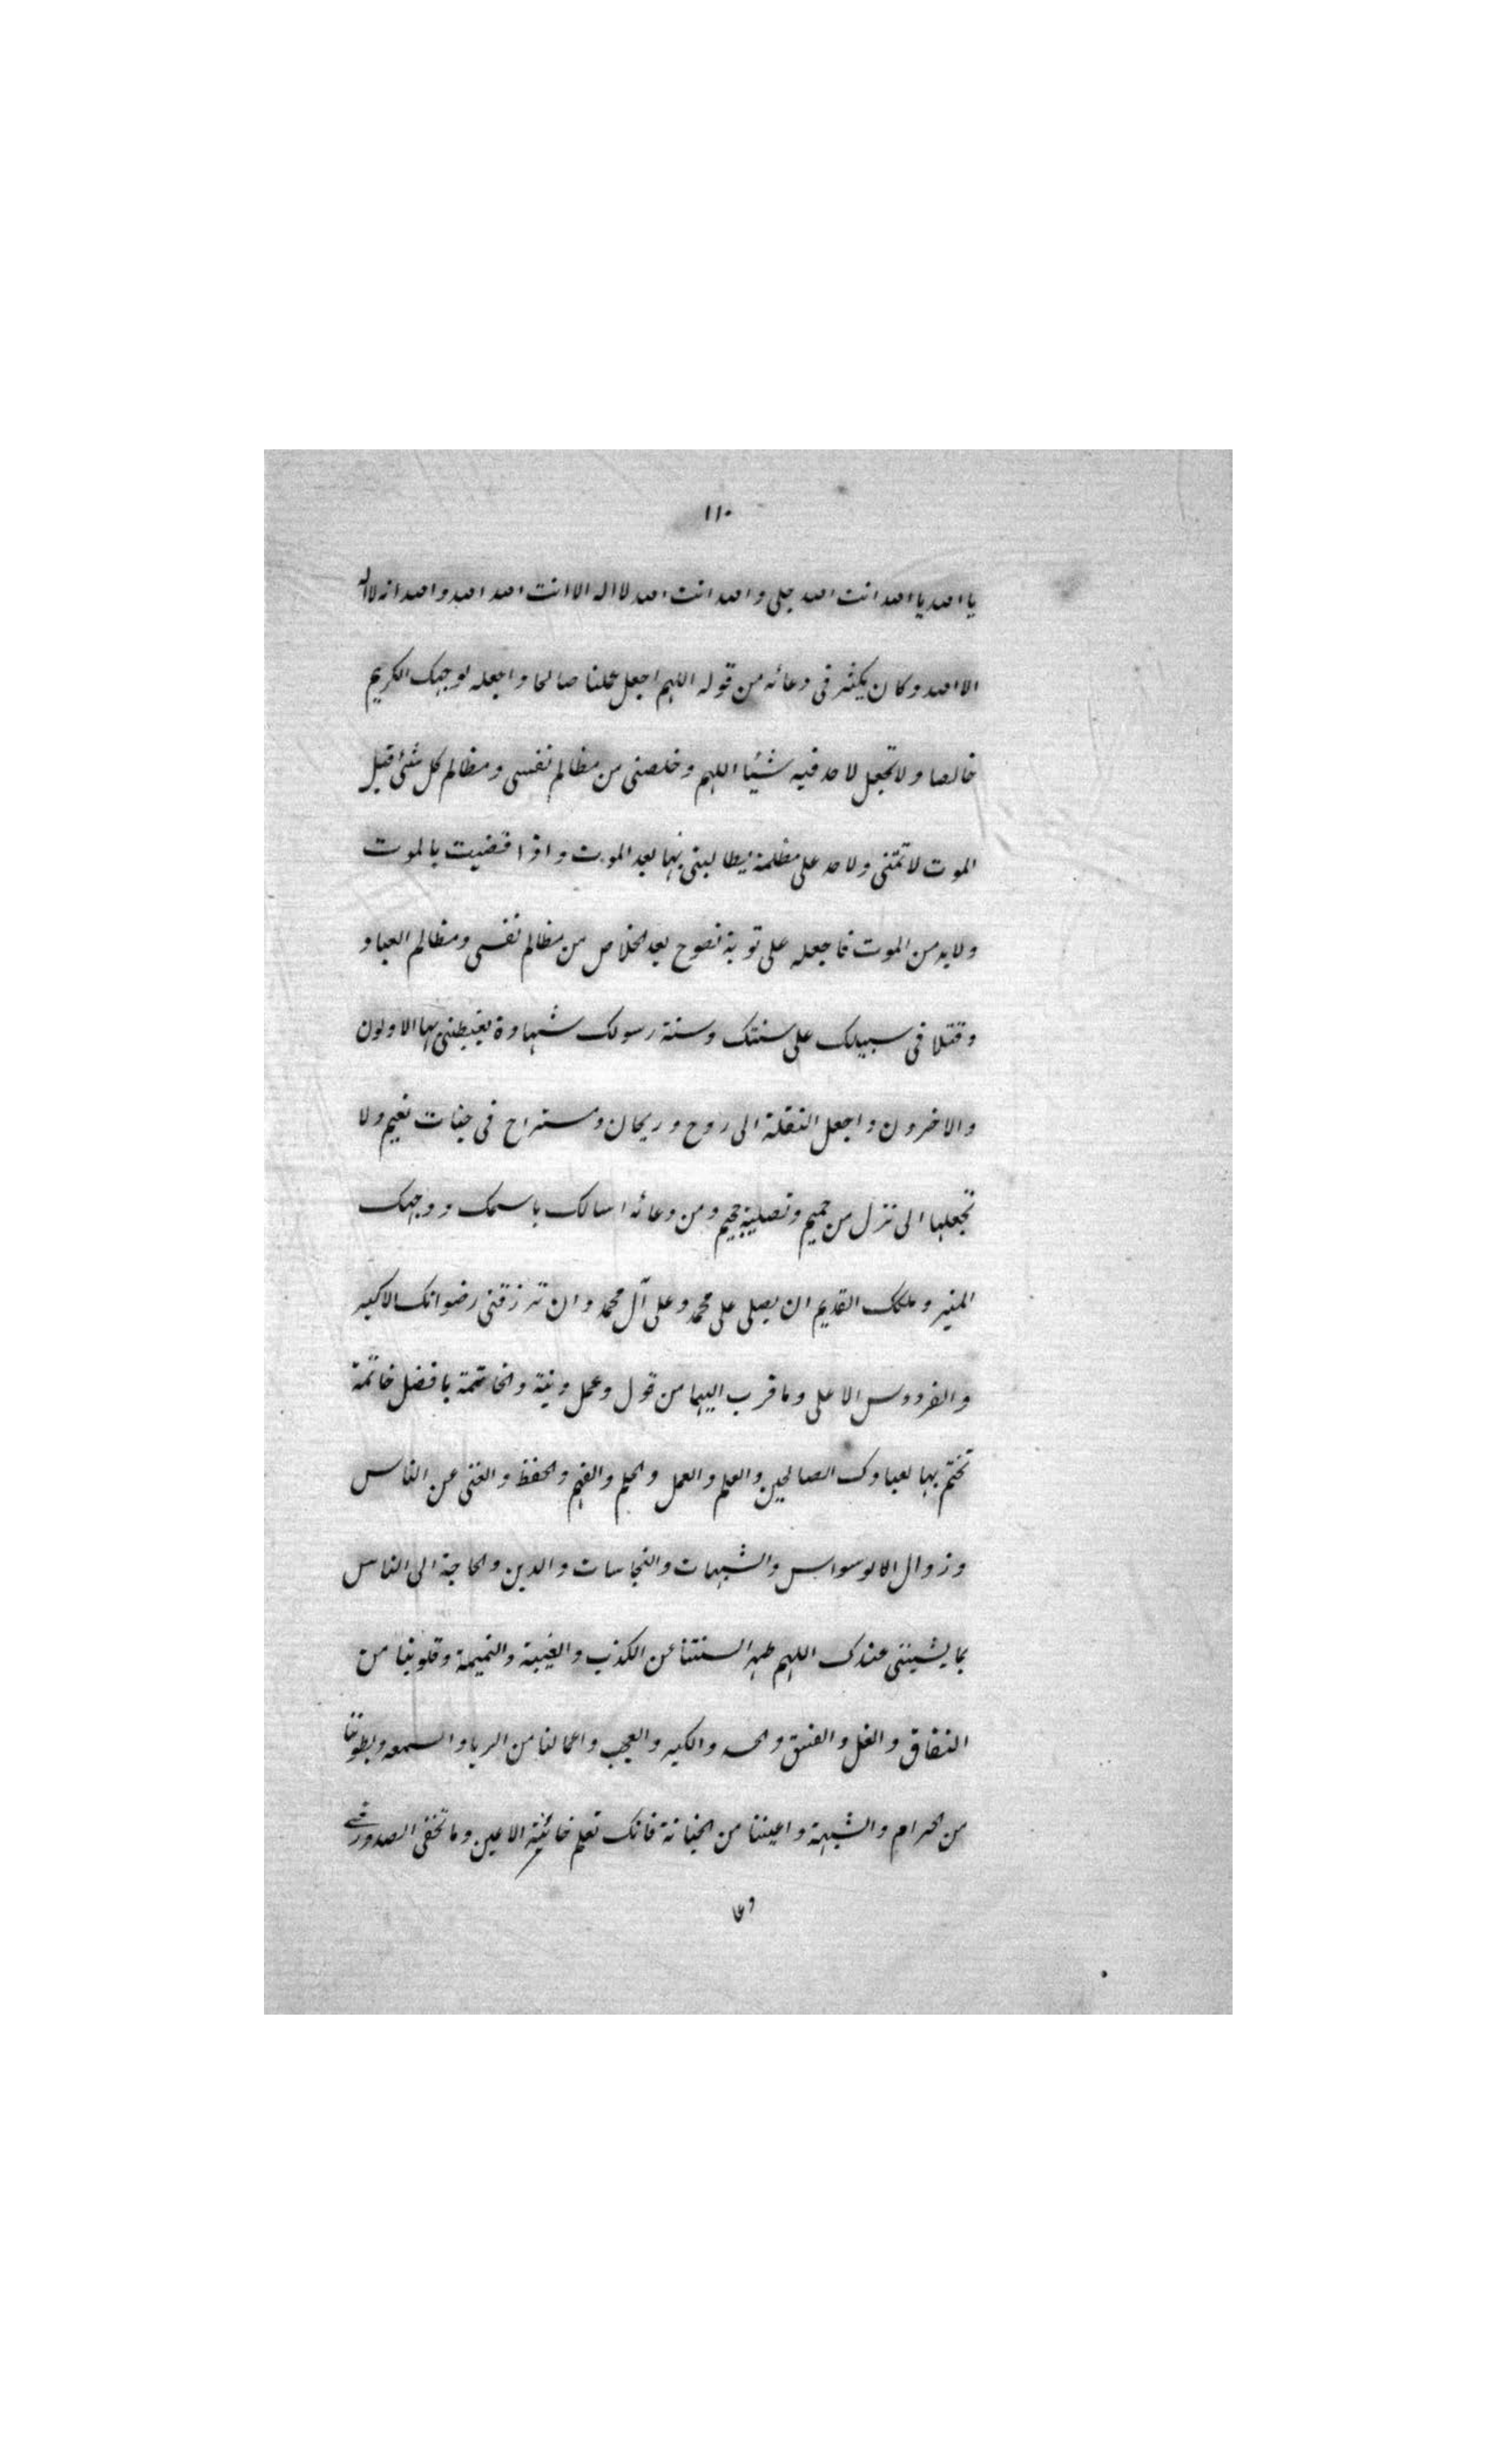 ١١٠
يا الله يا الله انت الله بلى والله انت الله لا اله الا انت الله الله والله انه لا اله
الا الله وكان يكثر فى دعائه من قوله اللهم اجعل عملنا صالحا واجعله لوجهك الكريم
خالصا ولا تجعل لاحد فيه شيئا اللهم وخلصنى من مظالم نفسى ومظالم كل شئ قبل
الموت لا تمتنى ولاحد على مظلمة يطالبنى بها بعد الموت واذا قضيت بالموت
ولا بد من الموت فاجعله على توبة نصوح بعد الخلاص من مظالم نفسى ومظالم العباد
وقتلا فى سبيلك على سنتك وسنة رسولك شهادة يغبطنى بها الاولون
والاخرون واجعل النقلة الى روح وريحان ومستراح فى جنات نعيم ولا
تجعلها الى نزل من حميم وتصلية جحيم ومن دعائه اسالك باسمك ووجهك
المنير وملكك القديم ان يصلى على محمد وعلى آل محمد وان ترزقنى رضوانك الاكبر
والفردوس الاعلى وما قرب اليهما من قول وعمل ونية والخاتمة بافضل خاتمة
تختم بها لعبادك الصالحين والعلم والعمل والحلم والفهم والحفظ والغنى عن الناس
وزوال الالوسواس والشبهات والنجاسات والدين والحاجة الى الناس
بما يشيننى عندك اللهم طهر السنتنا عن الكذب والغيبة والنميمة وقلوبنا من
النفاق والغل والفسق والحسد والكبر والعجب واعمالنا من الريا والسمعه وبطوننا
من الحرام والشبهة واعيننا من الخيانة فانك تعلم خائنة الاعين وما تخفى الصدور